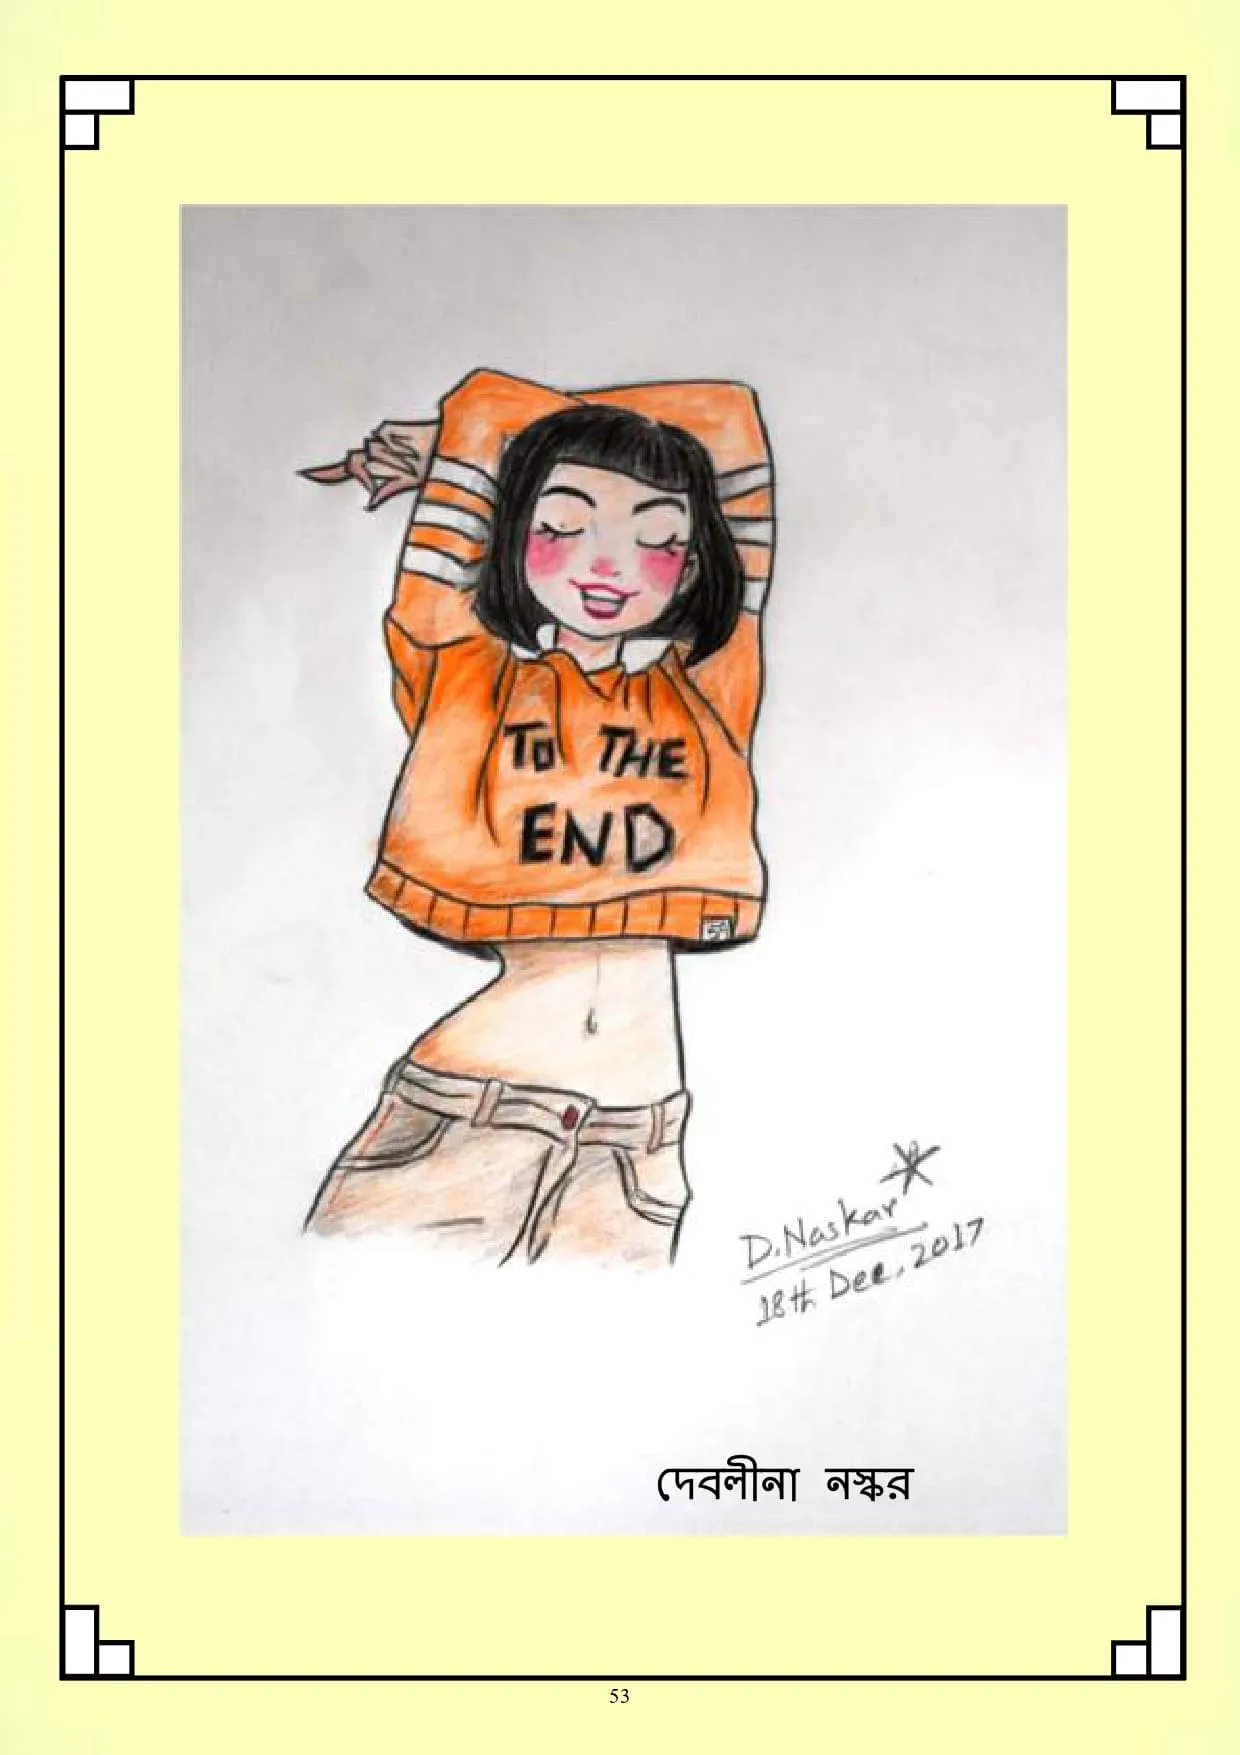 TO THE
END
59
D. Naskar
18th Dec, 2017
দেবলীনা নস্কর
53